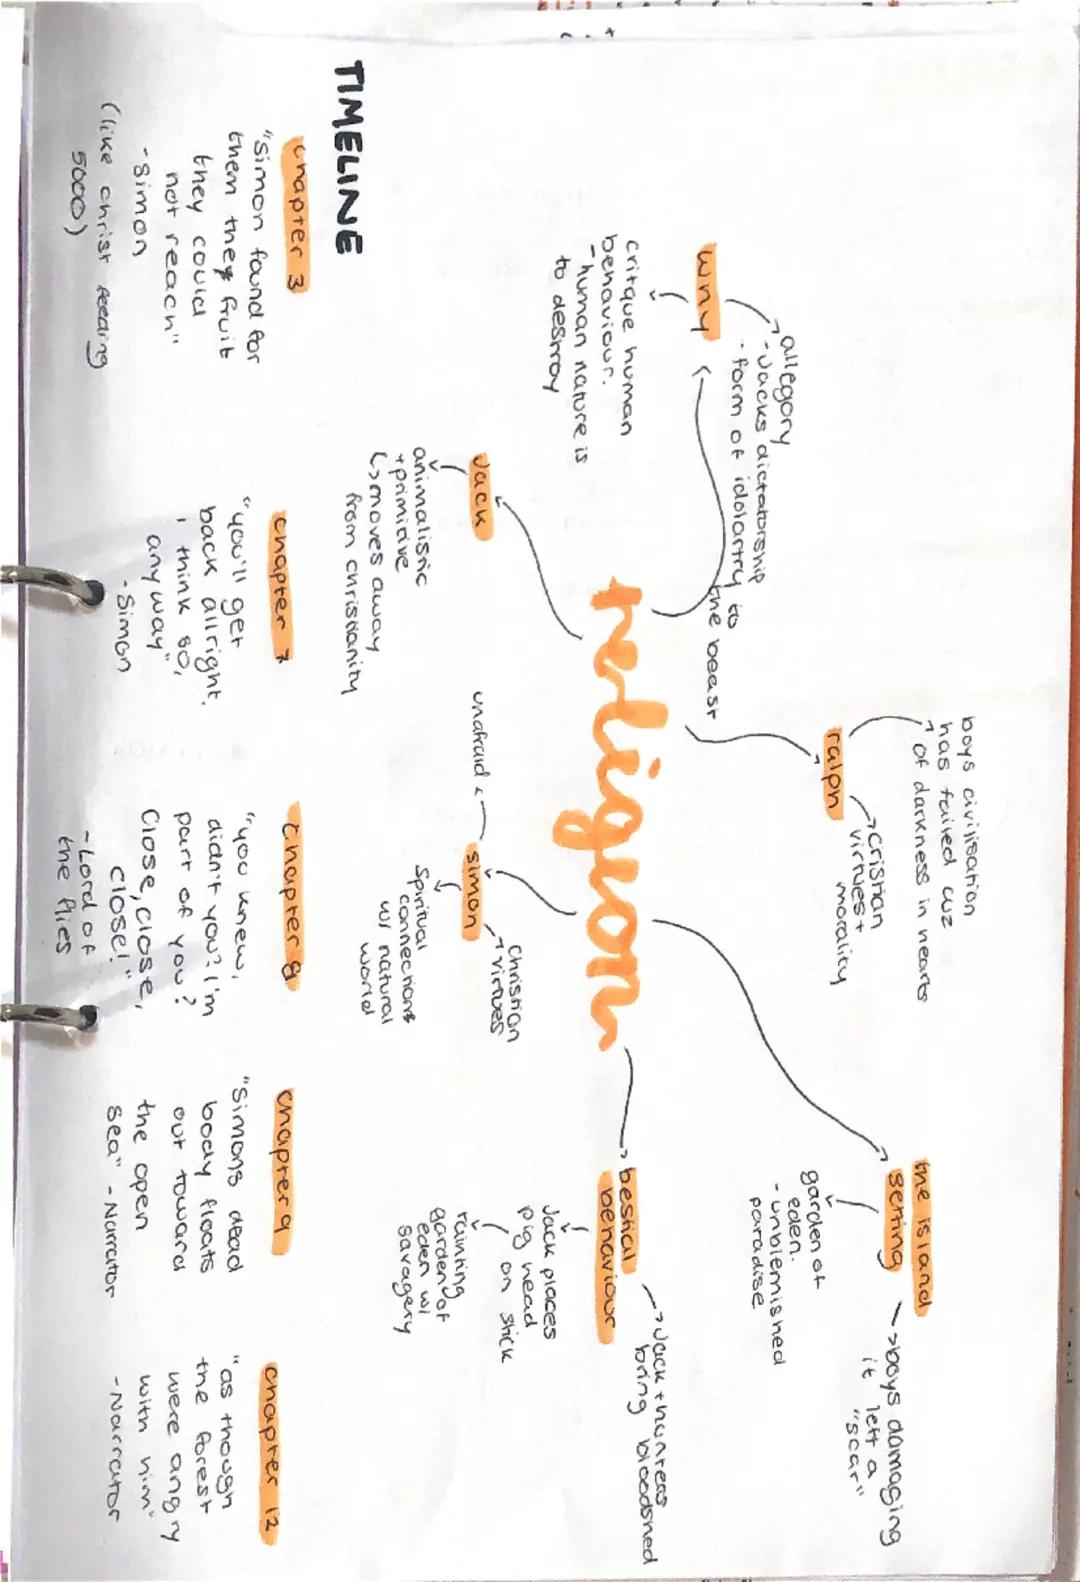 religion
why
allegory
-Jacks dictatorship
- form of idolartry to
the beast
critique human
behaviour.
-human nature is
to destroy
ralph
boys civilisation
has failed cuz
of darkness in hearts
Cristian
virtues +
morality
the island
setting
garden of
eden.
- unblemished
paradise
boys damaging
it left a
"scar"
Jack
animalistic
+primitive
moves away
from christianity
simon
unafraid
Christian
virtues
Spiritual
connections
w/ natural
world
bestial
behaviour
Jack + hunters
bring bloodshed
Jack places
pig head
on stick
tainting
garden of
eden w/
savagery
TIMELINE
chapter 3
"simon found for
them the fruit
they could
not reach"
-simon
(like christ feeding
5000)
chapter 7
"you'll get
back allright.
i think so,
anyway"
-Simon
chapter 8
"you knew,
didn't you? I'm
part of you?
Close, close,
close!"
-Lord of
the flies
chapter 9
"Simons dead
body floats
out toward
the open
sea" -Narrator
chapter 12
"as though
the forest
were angry
with him"
-Narrator